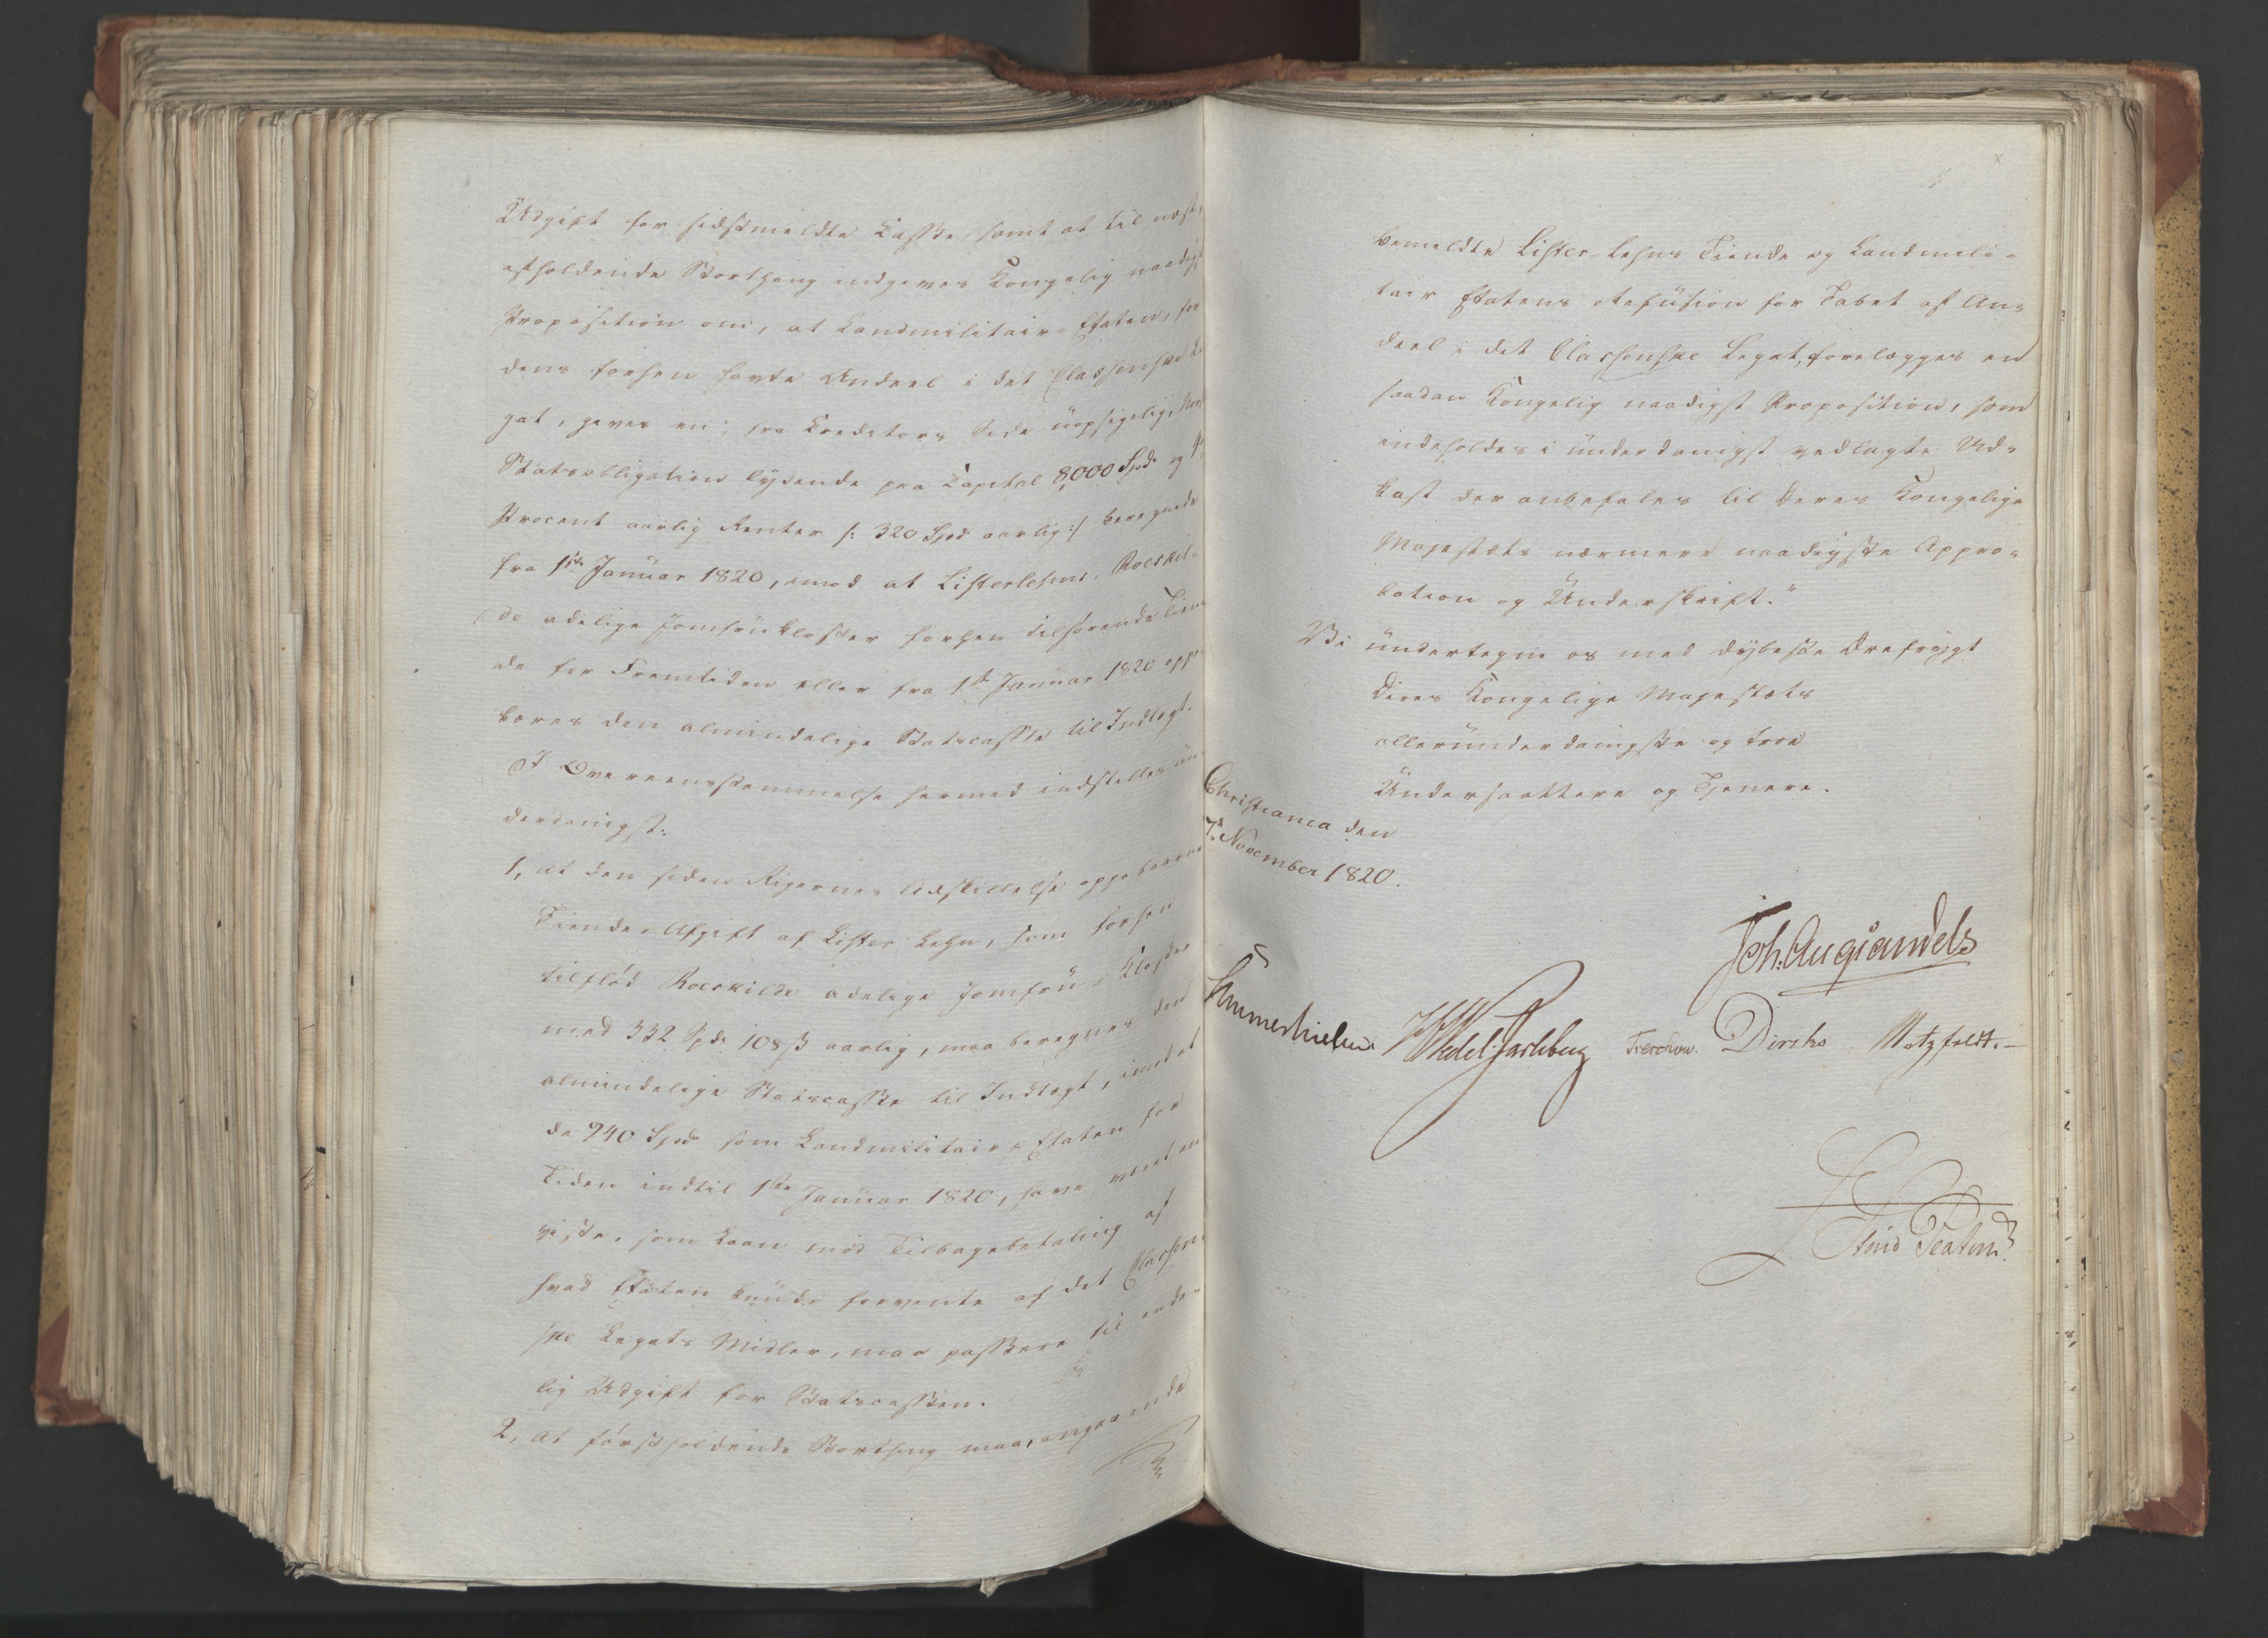 Udgift for sidstmeldte Kasse, samt at til næst
afholdende Storthing indgives Kongelig naadigst
Proposition om, at Landmilitair-Etaten, for
dens forhen havte Andeel i det Classenske Le
gat, gives en, fra Creditors Side uopsigelig,
Statsobligation lydende paa Capital 8000 Spd og 4
Procent aarlig Renter /: 320 Spd aarlig :/ beregnede
fra 1ste Januar 1820, imod at Listerlehns, Roeskil-
de adelige Jomfrukloster forhen tilhørende Tien
de for Fremtiden eller fra 1ste Januar 1820 oppe
bæres den almindelige Statscasse til Indtægt.
I Overeensstemmelse hermed indstilles un
derdanigst:
1, at den siden Rigernes Adskillelse oppebaarne
Tiende-Afgift af Lister Lehn, som forhen
tilflød Roeskilde adelige Jomfru-Kloster
med 332 Spd 108 ß aarlig, maa beregnes den
almindelige Statscasse til Indtægt, imod at
de 940 Spd som Landmilitair-Etaten for
Tiden indtil 1ste Januar 1820, have været an
viiste, som Laan mod Tilbagebetaling af
hvad Etaten kunde forvente af det Classen-
ske Legats Midler, maa passere til ende-
lig Udgift for Statscassen.
2, at førstholdende Storthing maa, angaaende
bemeldte Lister-Lehns Tiende og Landmili-
tair Etatens Refusion for Tabet af An-
deel i det Classenske Legat, forelægges en
saadan Kongelig naadigst Proposition, som
indeholdes i underdanigst vedlagte Ud-
kast der anbefales til Deres Kongelige
Majestæts nærmere naadigste Appro-
bation og Underskrift."
Vi undertegne os med dybeste Ærefrygt
Deres Kongelige Majestæts
allerunderdanigste og troe
Undersaattere og Tjenere.
Christiania den
7de November 1820.
Joh. Aug. Sandels
Sommerhielm Wedel Jarlsberg Treschow. Diriks Motzfeldt.